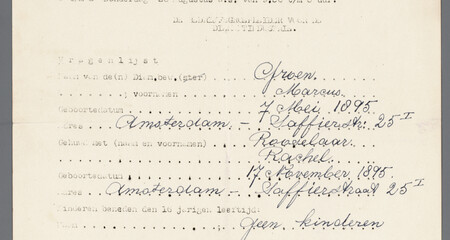 Vragenlijst
Naam van de(n) Dien.bod.(ster) Groen
voornamen Marcus
Geboortedatum 7 Mei 1895
Adres Amsterdam - Saffierstr. 25 I
Gehuwd met (naam en voornamen) Roozelaar
Rachel
Geboortedatum 17 November 1895
Adres Amsterdam - Saffierstraat 25 I
Kinderen beneden den 16 jarigen leeftijd:
Geen kinderen